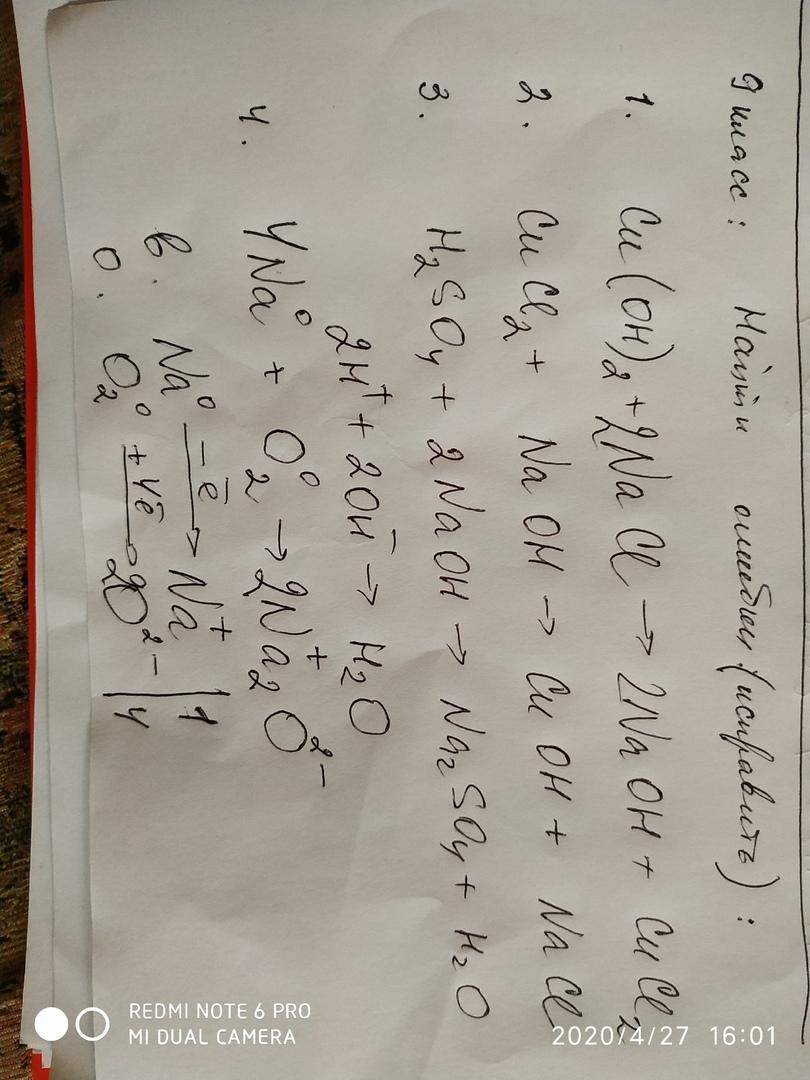 9 класс: Найти ошибки (исправить):
1. Cu(OH)₂ + 2NaCl → 2NaOH + CuCl₂
2. CuCl₂ + NaOH → CuOH + NaCl
3. H₂SO₄ + 2NaOH → Na₂SO₄ + H₂O
2H⁺ + 2OH⁻ → H₂O
4. 4Na⁰ + O₂⁰ → 2Na₂⁺O²⁻
в. Na⁰ –ē→ Na⁺ | 1
о. O₂⁰ +4ē→ 2O²⁻ | 4
REDMI NOTE 6 PRO
MI DUAL CAMERA
2020/4/27 16:01